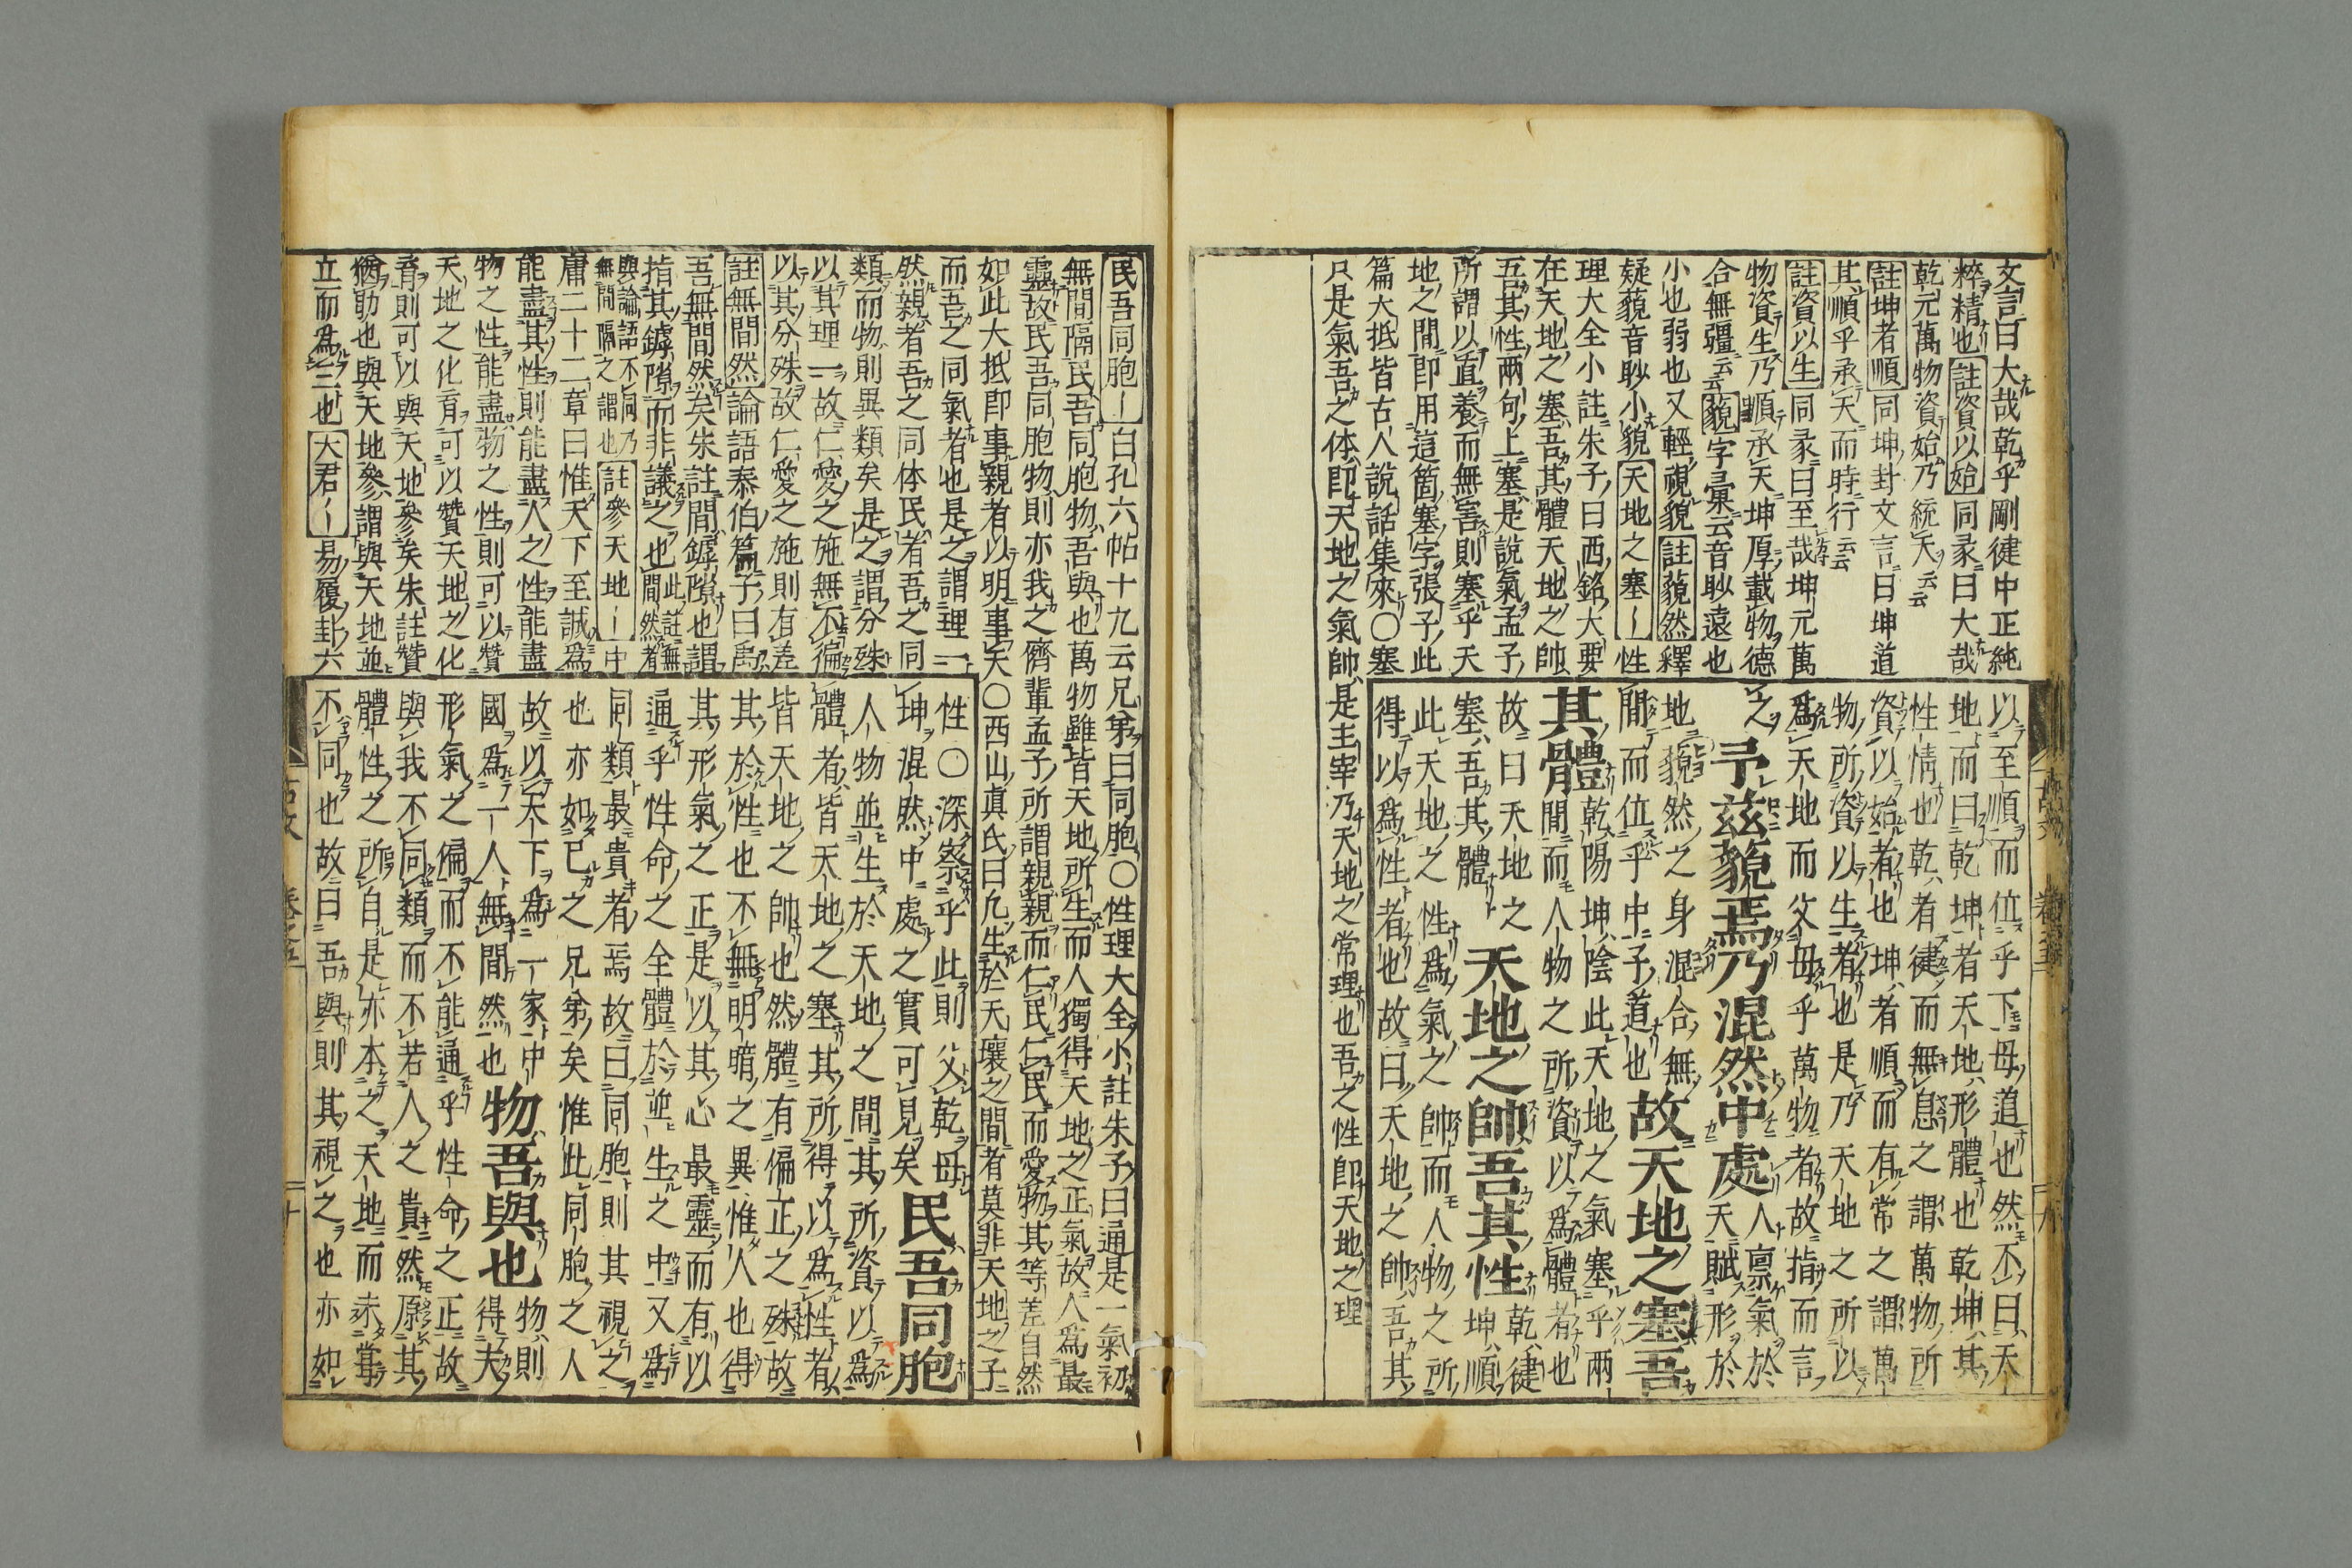 文言曰大哉乾乎剛健中正純
粹精也註資以始同彖曰大哉
乾元萬物資始乃統天云云
註坤者順同坤卦文言曰坤道
其順乎承天而時行云云
註資以生同彖曰至哉坤元萬
物資生乃順承天坤厚載物德
合無疆云云藐字彙云音眇遠也
小也弱也又輕視貌註藐然釋
疑藐音眇小貌天地之塞〡性
理大全小註朱子曰西銘大要
在天地之塞吾其體天地之帥
吾其性兩句上塞是說氣孟子
所謂以直養而無害則塞乎天
地之間即用這箇塞字張子此
篇大抵皆古人說話集來〇塞
只是氣吾之体即天地之氣帥是主宰乃天地之常理也吾之性即天地之理
以至順而位乎下母道也然不曰天
地而曰乾坤者天地形體也乾坤其
性情也乾者健而無息之謂萬物所
資以始者也坤者順而有常之謂萬
物所資以生者也是乃天地之所以
爲天地而父母乎萬物者故指而言
之予茲藐焉乃混然中處天賦形於
人禀氣於
地藐然之身混合無
間而位乎中子道也故天地之塞吾
其體乾陽坤陰此天地之氣塞乎兩
間而人物之所資以爲體者也
故曰天地之
塞吾其體天地之帥吾其性乾健
坤順
此天地之性爲氣之帥而人物之所
得以爲性者也故曰天地之帥吾其
民吾同胞〡白孔六帖十九云兄弟曰同胞〇性理大全小註朱子曰通是一氣初
無間隔民吾同胞物吾與也萬物雖皆天地所生而人獨得天地之正氣故人爲最
靈故民吾同胞物則亦我之儕輩孟子所謂親親而仁民仁民而愛物其等差自然
如此大抵即事親者以明事天〇西山真氏曰凡生於天壤之間者莫非天地之子
而吾之同氣者也是之謂理一
然親者吾之同体民者吾之同
類而物則異類矣是之謂分殊
以其理一故仁愛之施無不徧
以其分殊故仁愛之施則有差
註無間然論語泰伯篇子曰禹
吾無間然矣朱註間罅隙也謂
指其罅隙而非議之也此註無間然者
與論語不同乃無間隔之謂也註參天地〡中
庸二十二章曰惟天下至誠爲
能盡其性則能盡人之性能盡
物之性能盡物之性則可以贊
天地之化育可以贊天地之化
育則可以與天地參矣朱註贊
猶助也與天地參謂與天地並
立而爲三也大君〡易履卦六
性〇深察乎此則父乾母
坤混然中處之實可見矣民吾同胞
人物並生於天地之間其所資以爲
體者皆天地之塞其所得以爲性者
皆天地之帥也然體有偏正之殊故
其於性也不無明暗之異惟人也得
其形氣之正是以其心最靈而有以
通乎性命之全體於並生之中又爲
同類最貴者焉故曰同胞則其視之
也亦如己之兄弟矣惟此同胞之人
故以天下爲一家中
國爲一人無間然也物吾與也物則
得夫
形氣之偏而不能通乎性命之正故
與我不同類而不若人之貴然原其
體性之所自是亦本之天地而未嘗
不同也故曰吾與則其視之也亦如